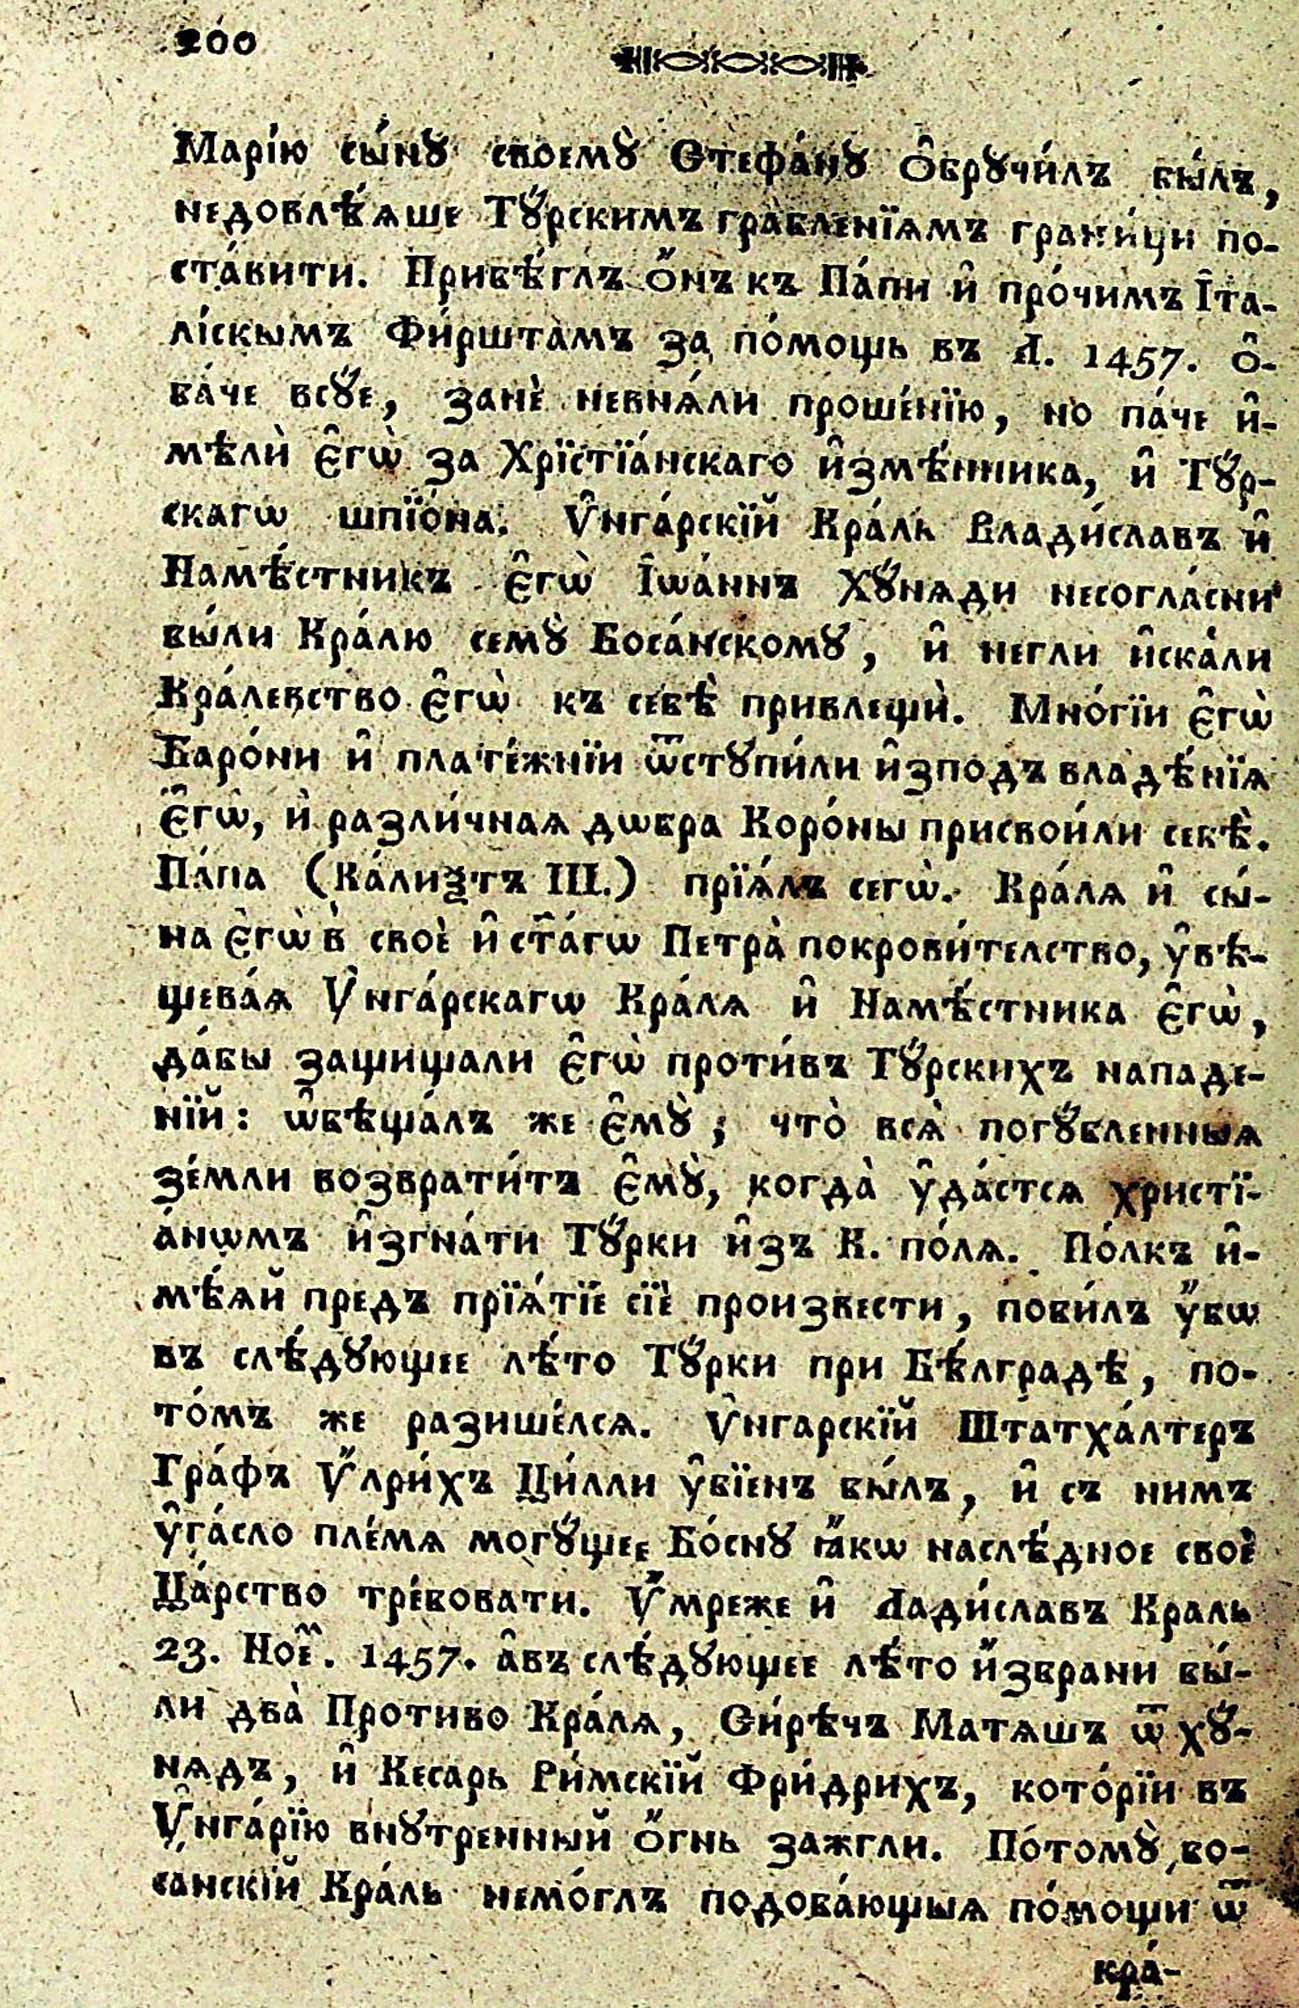 200
Марі́ю сы́нꙋ своемꙋ̀ Стефа́нꙋ ѻ҆брꙋчи́лъ бы́лъ,
недовлѣ́ѧше Тꙋ́рскимъ грабленїѧмъ грани́ци по-
ста́вити. Прибѣ́глъ ѻ҆́нъ къ Па́пи и҆ про́чимъ І҆та-
лі́скымъ Фи́рштамъ за по́мощь въ Л. 1457. ѻ҆-
ба́че всꙋ́е, занѐ невнѧ́ли проше́нїю, но па́че и҆-
мѣлѝ є҆гѡ̀ за Хрїстїа́нскаго и҆змѣ́нника, и҆ Тꙋ́р-
скагѡ шпїо́на. Ѹ҆нга́рскїй Кра́ль Влади́славъ и҆
Намѣ́стникъ є҆гѡ̀ І҆ѡа́ннъ Хꙋ́нѧди несогла́сни
бы́ли Кра́лю семꙋ̀ Боса́нскомꙋ, и҆ негли и҆ска́ли
Кра́левство є҆гѡ̀ къ себѣ̀ привлещѝ. Мно́гїи є҆гѡ̀
Баро́ни и҆ плате́жнїи ѿстꙋпи́ли и҆зподъ владѣ́нїѧ
є҆гѡ̀, и҆ разли́чнаѧ дѡбра Коро́ны присвои́ли себѣ̀.
Па́па (Ка́лиѯтъ III.) прїѧ́лъ сегѡ̀. Кра́лѧ и҆ сы́-
на є҆гѡ̀ в̾ своѐ и҆ ст҃а́гѡ Петра̀ покрови́телство, ѹ҆вѣ-
щева́ѧ Ѹ҆нга́рскагѡ Кра́лѧ и҆ Намѣ́стника є҆гѡ̀,
да́бы защищали є҆гѡ̀ проти́въ Тꙋ́рскихъ нападе-
нїй: ѡ҆бѣща́лъ же є҆мꙋ̀, что̀ всѧ̀ погꙋ́бленныѧ
зе́мли возврати́тъ є҆мꙋ̀, когда̀ ѹ҆да́стсѧ христї-
а́нѡмъ и҆згна́ти Тꙋ́рки и҆зъ К. по́лѧ. По́лкъ и҆-
мѣ́ѧй предъ прїѧ́тїе сїѐ произвести, поби́лъ ѹ҆́бѡ
въ слѣ́дꙋющее лѣ́то Тꙋ́рки при Бѣ́лградѣ, по-
то́мъ же разише́лсѧ. Ѹ҆нгарскїй Штатха́лтеръ
Гра́фъ Ѹ҆́лри́хъ Ци́лли ѹ҆бїенъ бы́лъ, и҆ съ нимъ
ѹ҆га́сло пле́мѧ могꙋ́щее Бо́снꙋ ꙗ҆́кѡ наслѣ́дное своѐ
Ца́рство тре́бовати. Ѹ҆́мреже и҆ Лади́славъ Краль
23. Ное҃м. 1457. а҆въ слѣ́дꙋющее лѣ́то и҆́збрани бы́-
ли два̀ Противо Кра́лѧ, Си́рѣчъ Матѧшъ ѿ хꙋ́-
нѧдъ, и҆ Кесарь Ри́мскїй Фри́дрихъ, кото́рїи въ
Ѹ҆нга́рїю внꙋтренный ѻ҆́гнь зажгли. По́томꙋ̀ бо-
санскїй Кра́ль немо́глъ подоба́ющыѧ по́мощи ѿ
кра́-